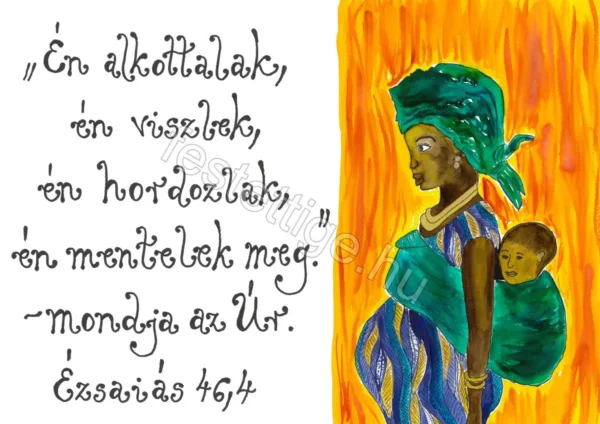 „Én alkottalak,
én viszlek,
én hordozlak,
én mentelek meg."
~mondja az Úr.
Ézsaiás 46,4
festettige.hu